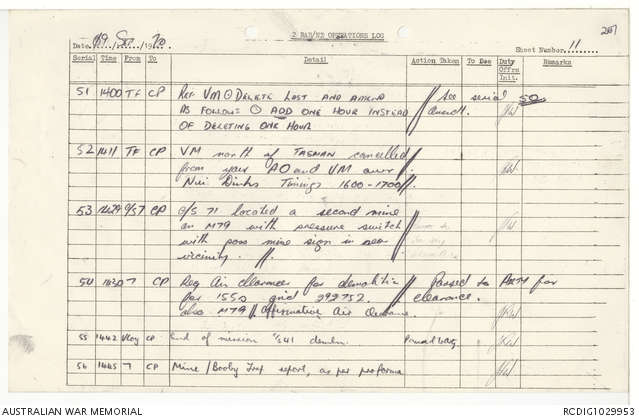 2 RAR/NZ OPERATIONS LOG
251
Date 09 / Sep / 1970
Sheet Number 11
Serial Time From To Detail Action Taken To Dee Duty Offrs Init. Remarks
51 1400 TF CP Ref VM DELETE LAST AND AMEND See serial 50
AS FOLLOWS ADD ONE HOUR INSTEAD overall.
OF DELETING ONE HOUR
52 1411 TF CP VM north of TASMAN cancelled
from your AO and VM over
Nui Dinhs Timings 1600-1700
53 1429 C/S7 CP C/S 71 located a second mine
an M79 with pressure switch
with poss mine sign in near
vicinity.
54 1430 7 CP Req Air clearance for demolition Passed to Arty for
for 1550 grid 292752. clearance.
also M79 // Affirmative Air Clearance.
55 1442 CP End of mission
56 1445 7 CP Mine / Booby Trap report, as per proforma
AUSTRALIAN WAR MEMORIAL
RCDIG1029953